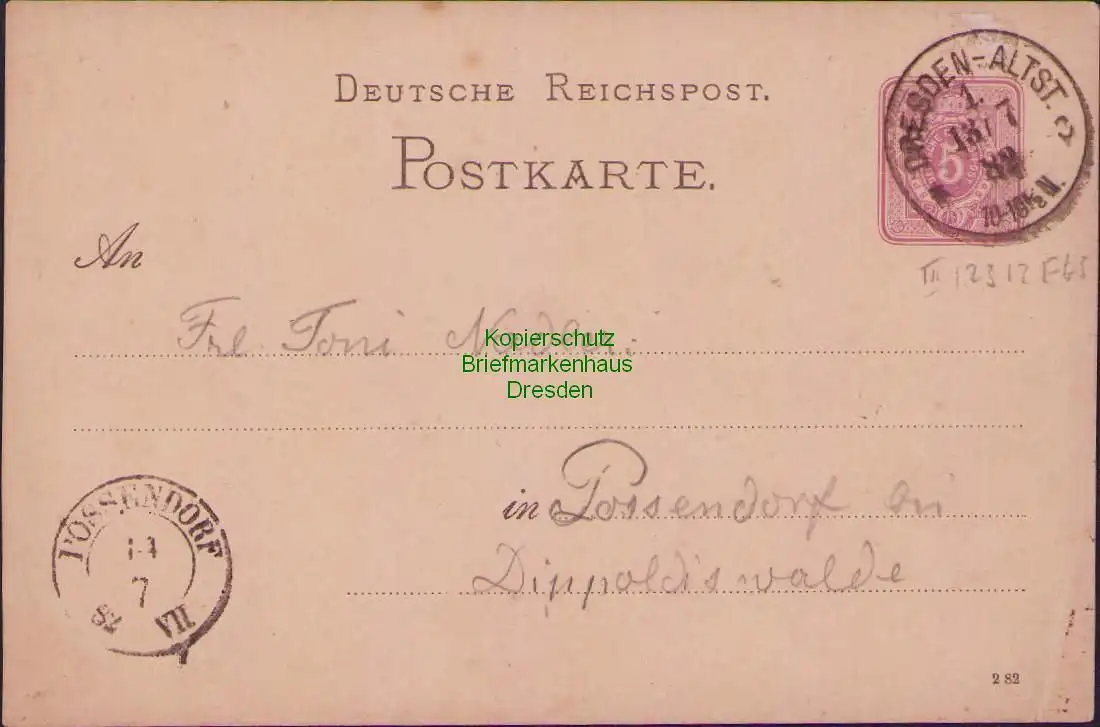 DEUTSCHE REICHSPOST.
POSTKARTE.
DRESDEN-ALTST. 2
13/7
82
5
An
III 123 12
Frl. Toni
Kopierschutz
Briefmarkenhaus
Dresden
in Possendorf bei
Dippoldiswalde
POSSENDORF
14
7
82 VII
2 82